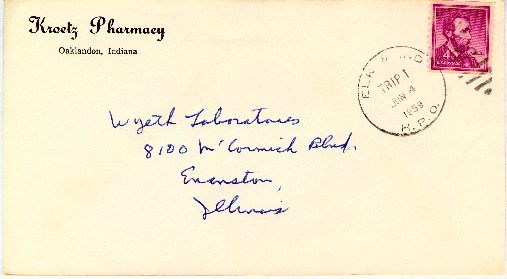 Kroetz Pharmacy
Oaklandon, Indiana
ELK. & IND.
TRIP 1
JUN 4
1959
H.P.O.
Wyeth Laboratories
8100 McCormick Blvd.
Evanston,
Illinois